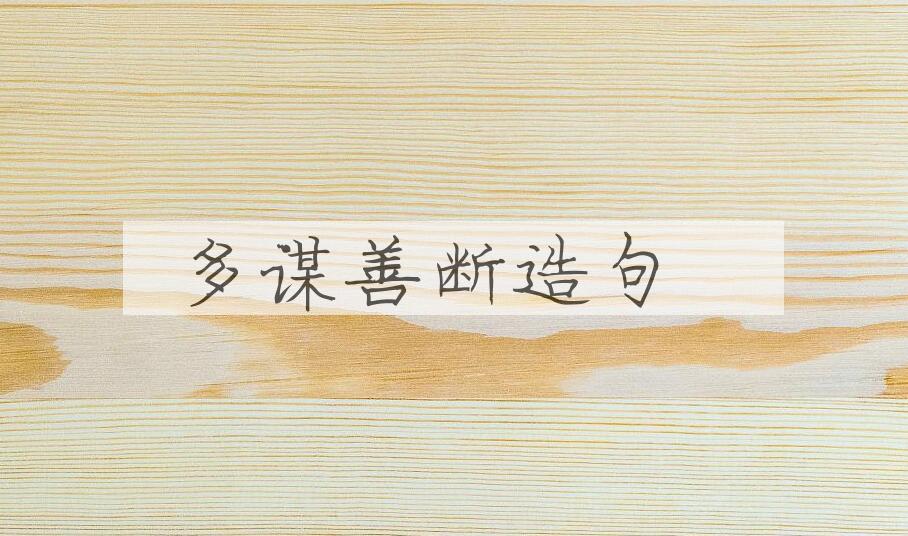 多谋善断造句